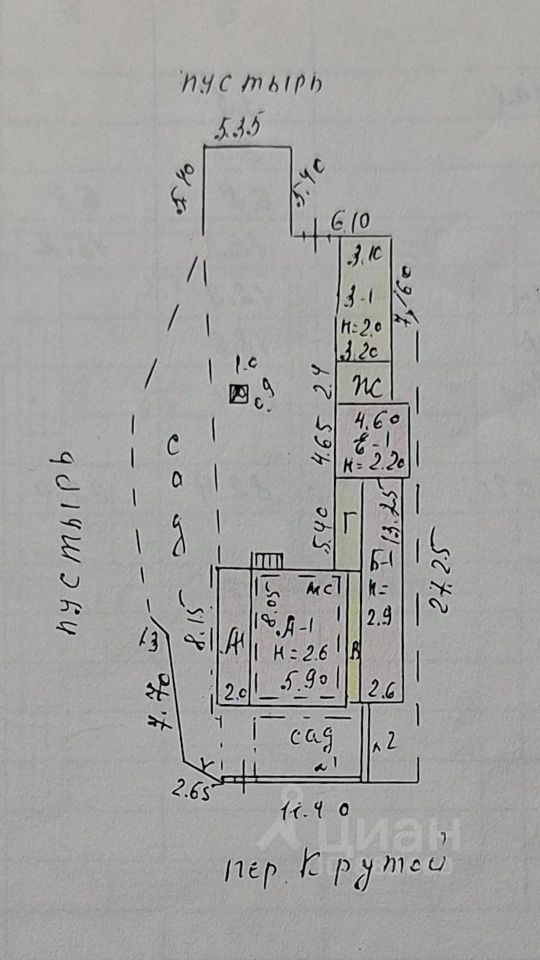 пустырь
5.35
5.40
5.40
6.10
3.10
З-1
н=2.0
3.20
7.60
1.0
0.9
2.4
Ж
4.60
Е-1
н=2.20
4.65
сад
пустырь
5.40
Г
13.25
Б-1
н=
2.9
2.6
27.25
8.15
8.05
мс
А-1
н=2.6
5.90
2.0
В
13
7.70
2.65
сад
11.40
Циан
пер. Крутой